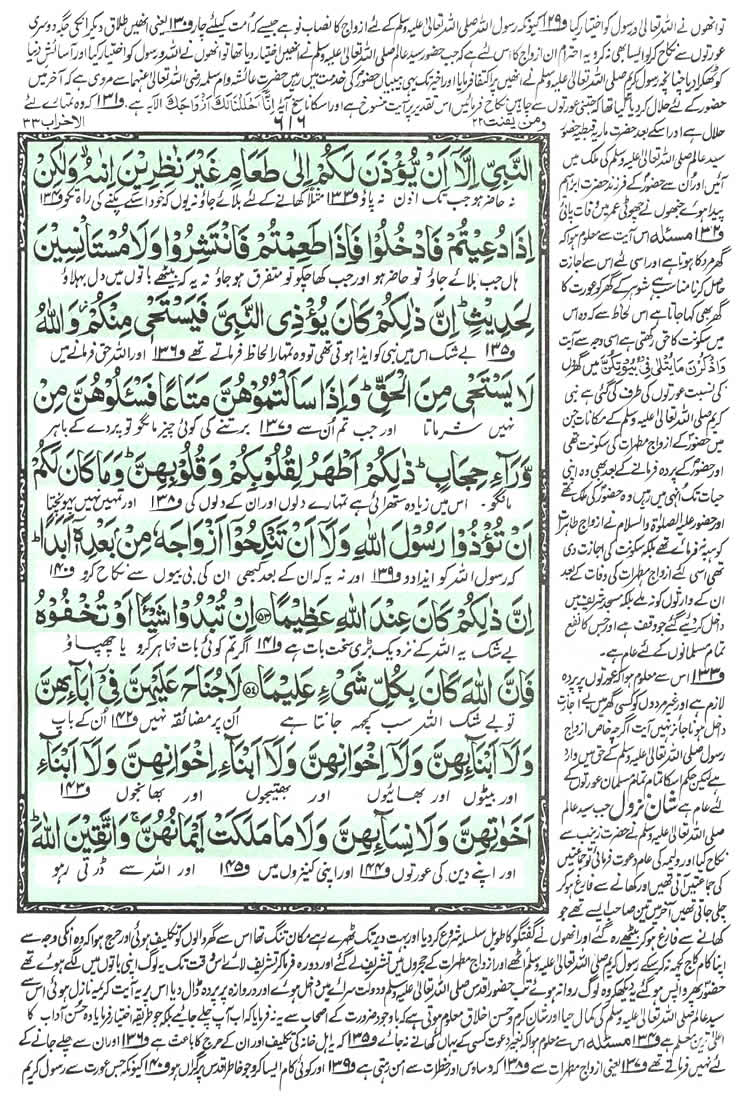 تو انھوں نے اللہ تعالیٰ و رسول کو اختیار کیا و۱۲۹ کیونکہ رسول اللہ صلی اللہ تعالیٰ علیہ وسلم کے لئے ازواج کا نصاب نو ہے جیسے کہ اُمت کیلئے چار و۱۳۰ یعنی انھیں طلاق دیکر انکی جگہ دوسری
عورتوں سے نکاح کر لو ایسا بھی نہ کرو یہ احترام ان ازواج کا اس لئے ہے کہ جب حضور سید عالم صلی اللہ تعالیٰ علیہ وسلم نے انھیں اختیار دیا تھا تو انھوں نے اللہ و رسول کو اختیار کیا اور آسائش دنیا
کو ٹھکرا دیا چنانچہ رسول کریم صلی اللہ تعالیٰ علیہ وسلم نے انھیں پر اکتفا فرمایا اور اخیر تک یہی بیبیاں حضور کی خدمت میں رہیں حضرت عائشہ و ام سلمہ رضی اللہ تعالیٰ عنہما سے مروی ہے کہ آخر میں
حضور کے لئے حلال کر دیا گیا تھا کہ جتنی عورتوں سے چاہیں نکاح فرمائیں اس تقدیر پر آیت منسوخ ہے اور اسکا ناسخ آیۂ اِنَّا اَحْلَلْنَا لَكَ اَزْوَاجَكَ الآیہ ہے و۱۳۱ کہ وہ تمہارے لئے
ومن یقنت ۲۲
۶۱۶
الاحزاب ۳۳
النَّبِيِّ اِلَّاۤ اَنْ يُّؤْذَنَ لَكُمْ اِلٰى طَعَامٍ غَيْرَ نٰظِرِيْنَ اِنٰىهُ وَلٰكِنْ
نہ حاضر ہو جب تک اذن نہ پاؤ و۱۳۳ مثلاً کھانے کے لئے بلائے جاؤ نہ یوں کہ خود اسکے پکنے کی راہ تکو و۱۳۴
اِذَا دُعِيْتُمْ فَادْخُلُوْا فَاِذَا طَعِمْتُمْ فَانْتَشِرُوْا وَلَا مُسْتَاْنِسِيْنَ
ہاں جب بلائے جاؤ تو حاضر ہو اور جب کھا چکو تو متفرق ہو جاؤ نہ یہ کہ بیٹھے باتوں میں دل بہلاؤ
لِحَدِيْثٍ ؕ اِنَّ ذٰلِكُمْ كَانَ يُؤْذِي النَّبِيَّ فَيَسْتَحْيٖ مِنْكُمْ ۫ وَاللّٰهُ
و۱۳۵ بے شک اس میں نبی کو ایذا ہوتی تھی تو وہ تمہارا لحاظ فرماتے تھے و۱۳۶ اور اللہ حق فرمانے میں
لَا يَسْتَحْيٖ مِنَ الْحَقِّ ؕ وَاِذَا سَاَلْتُمُوْهُنَّ مَتَاعًا فَسْـَٔلُوْهُنَّ مِنْ
نہیں شرماتا اور جب تم اُن سے و۱۳۷ برتنے کی کوئی چیز مانگو تو پردے کے باہر
وَّرَآءِ حِجَابٍ ؕ ذٰلِكُمْ اَطْهَرُ لِقُلُوْبِكُمْ وَقُلُوْبِهِنَّ ؕ وَمَا كَانَ لَكُمْ
مانگو۔ اس میں زیادہ ستھرائی ہے تمہارے دلوں اور ان کے دلوں کی و۱۳۸ اور تمہیں نہیں پہونچتا
اَنْ تُؤْذُوْا رَسُوْلَ اللّٰهِ وَلَاۤ اَنْ تَنْكِحُوْۤا اَزْوَاجَهٗ مِنْۢ بَعْدِهٖۤ اَبَدًا ؕ
کہ رسول اللہ کو ایذا دو و۱۳۹ اور نہ یہ کہ ان کے بعد کبھی ان کی بی بیوں سے نکاح کرو و۱۴۰
اِنَّ ذٰلِكُمْ كَانَ عِنْدَ اللّٰهِ عَظِيْمًا ﴿۵۳﴾ اِنْ تُبْدُوْا شَيْـًٔا اَوْ تُخْفُوْهُ
بے شک یہ اللہ کے نزدیک بڑی سخت بات ہے و۱۴۱ اگر تم کوئی بات ظاہر کرو یا چھپاؤ
فَاِنَّ اللّٰهَ كَانَ بِكُلِّ شَيْءٍ عَلِيْمًا ﴿۵۴﴾ لَا جُنَاحَ عَلَيْهِنَّ فِيْۤ اٰبَآئِهِنَّ
تو بے شک اللہ سب کچھ جانتا ہے اُن پر مضائقہ نہیں و۱۴۲ اُن کے باپ
وَلَاۤ اَبْنَآئِهِنَّ وَلَاۤ اِخْوَانِهِنَّ وَلَاۤ اَبْنَآءِ اِخْوَانِهِنَّ وَلَاۤ اَبْنَآءِ
اور بیٹوں اور بھائیوں اور بھتیجوں اور بھانجوں و۱۴۳
اَخَوٰتِهِنَّ وَلَا نِسَآئِهِنَّ وَلَا مَا مَلَكَتْ اَيْمَانُهُنَّ ۚ وَاتَّقِيْنَ اللّٰهَ ؕ
اور اپنے دین کی عورتوں و۱۴۴ اور اپنی کنیزوں میں و۱۴۵ اور اللہ سے ڈرتی رہو
حلال ہے اور اسکے بعد حضرت ماریہ قبطیہ حضور
سید عالم صلی اللہ تعالیٰ علیہ وسلم کی ملک میں
آئیں اور اُن سے حضور کے فرزند حضرت ابراہیم
پیدا ہوئے جنھوں نے چھوٹی عمر میں وفات پائی
و۱۳۲ مسئلہ اس آیت سے معلوم ہوا کہ
گھر مرد کا ہوتا ہے اور اسی لئے اس سے اجازت
حاصل کرنا مناسب ہے شوہر کے گھر کو عورت کا
گھر بھی کہا جاتا ہے اس لحاظ سے کہ وہ اس
میں سکونت کا حق رکھتی ہے اسی وجہ سے آیت
وَاذْكُرْنَ مَا يُتْلٰى فِيْ بُيُوْتِكُنَّ میں گھروں
کی نسبت عورتوں کی طرف کی گئی ہے نبی
کریم صلی اللہ تعالیٰ علیہ وسلم کے مکانات جن
میں حضور کے ازواج مطہرات کی سکونت تھی
اور حضور کے پردہ فرمانے کے بعد بھی وہ اپنی
حیات تک انہی میں رہیں وہ حضور کی ملک تھے
اور حضور علیہ الصلوٰۃ والسلام نے ازواج طاہرات
کو ہبہ نہ فرمائے تھے بلکہ سکونت کی اجازت دی
تھی اسی لئے ازواج مطہرات کی وفات کے بعد
ان کے وارثوں کو نہ ملے بلکہ مسجد شریف میں
داخل کر دیئے گئے جو وقف ہے اور جس کا نفع
تمام مسلمانوں کے لئے عام ہے۔
و۱۳۳ اس سے معلوم ہوا کہ عورتوں پر پردہ
لازم ہے اور غیر مردوں کو کسی گھر میں بے اجازت
داخل ہونا جائز نہیں آیت اگرچہ خاص ازواج
رسول صلی اللہ تعالیٰ علیہ وسلم کے حق میں وارد
ہے لیکن حکم اسکا تمام مسلمان عورتوں کے
لئے عام ہے شان نزول جب سید عالم
صلی اللہ تعالیٰ علیہ وسلم نے حضرت زینب سے
نکاح کیا اور ولیمہ کی عام دعوت فرمائی تو جماعتیں
کی جماعتیں آتی تھیں اور کھانے سے فارغ ہو کر
چلی جاتی تھیں آخر میں تین صاحب ایسے تھے جو
کھانے سے فارغ ہو کر بیٹھے رہ گئے اور انھوں نے گفتگو کا طویل سلسلہ شروع کر دیا اور بہت دیر تک ٹھہرے رہے مکان تنگ تھا اس سے گھر والوں کو تکلیف ہوئی اور حرج ہوا کہ وہ انکی وجہ سے
اپنا کام کاج کچھ نہ کر سکے رسول کریم صلی اللہ تعالیٰ علیہ وسلم اٹھے اور ازواج مطہرات کے حجروں میں تشریف لے گئے اور دورہ فرما کر تشریف لائے اس وقت تک یہ لوگ اپنی باتوں میں لگے ہوئے تھے
حضور پھر واپس ہو گئے یہ دیکھ کر وہ لوگ روانہ ہوئے تب حضور اقدس صلی اللہ تعالیٰ علیہ وسلم دولت سرائے میں داخل ہوئے اور دروازہ پر پردہ ڈال دیا اس پر یہ آیت کریمہ نازل ہوئی اس سے
سید عالم صلی اللہ تعالیٰ علیہ وسلم کی کمال حیا اور شان کرم و حسن اخلاق معلوم ہوتی ہے کہ باوجود ضرورت کے اصحاب سے یہ نہ فرمایا کہ اب آپ چلے جائیے بلکہ جو طریقہ اختیار فرمایا وہ حسن آداب کا
اعلیٰ ترین معلم ہے و۱۳۴ مسئلہ اس سے معلوم ہوا کہ بغیر دعوت کسی کے یہاں کھانا کھانے نہ جائے و۱۳۵ کہ یہ اہل خانہ کی تکلیف اور ان کے حرج کا باعث ہے و۱۳۶ اور ان سے چلے جانے کے
لئے نہیں فرماتے تھے و۱۳۷ یعنی ازواج مطہرات سے و۱۳۸ کہ وساوس اور خطرات سے امن رہتی ہے و۱۳۹ اور کوئی کام ایسا کرو جو خاطر اقدس پر گراں ہو و۱۴۰ کیونکہ جس عورت سے رسول کریم